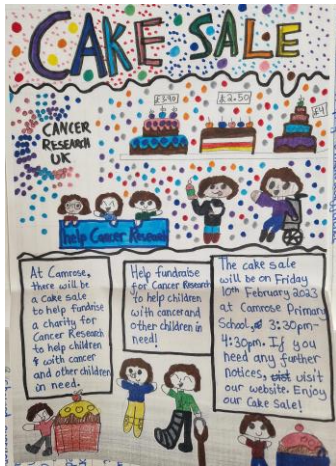 CAKE SALE
£2.50
£4
CANCER
RESEARCH
UK
help Cancer Research
At Camrose,
there will be
a cake sale
to help fundrise
a charity for
Cancer Research
to help children
with cancer
and other children
in need.
Help fundraise
for Cancer Research
to help children
with cancer and
other children in
need!
The cake sale
will be on Friday
10th February 2023
at Camrose Primary
School, 3:30pm-
4:30pm. If you
need any further
notices, visit
our website. Enjoy
our Cake Sale!